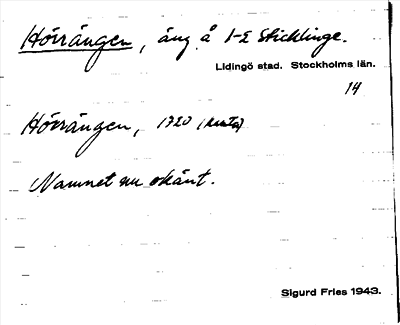 Hörrängen, äng å 1-2 Sticklinge.
Lidingö stad. Stockholms län.
14
Hörrängen, 1720 (karta)
Namnet nu okänt.
Sigurd Fries 1943.